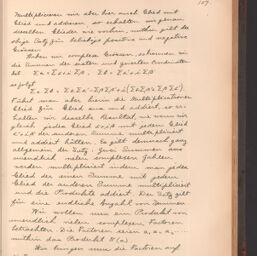 107.
Multiplizieren wir aber hier auch Glied mit
Glied und addieren so erhalten wir genau
dieselben Glieder wie vorhin, mithin gilt der
obige Satz für beliebige positive und negative
Grössen.
Haben wir complexe Grössen, so können wir
die Summen der ersten und zweiten
so folgt
Führt man aber hierin die Multiplicationen
Glied für Glied aus und addirt, so er-
halten wir dasselbe Resultat, wie wenn wir
gleich jedes Glied mit jedem Glied
der anderen Summe multiplicirt
und addirt hätten. Es gilt demnach ganz
allgemein der Satz: Zwei Summen aus
unendlich vielen complexen Zahlen
werden multiplicirt indem man jedes
Glied der einen Summe mit jedem
Glied der anderen Summe multiplicirt
und die Produkte addirt. Der Satz gilt
für eine endliche Anzahl von Summen.
Wir wollen nun ein Produkt von
unendlich vielen complexen Factoren
betrachten. Die Factoren seien
mithin das Produkt
Wir bringen nun die Factoren auf